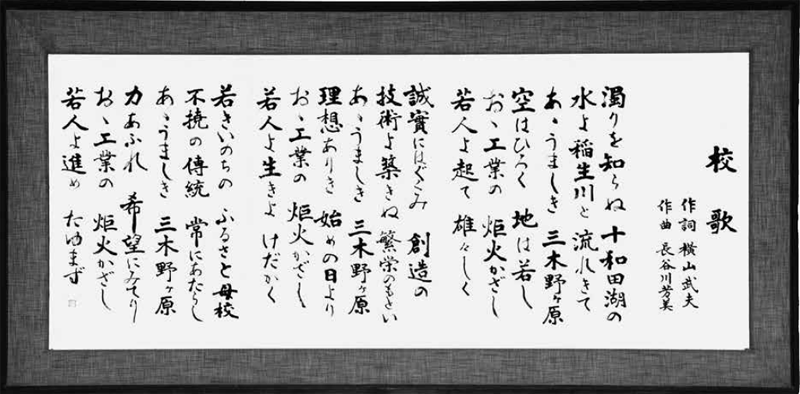 校歌
作詞 横山武夫
作曲 長谷川芳美
濁りを知らぬ 十和田湖の
水よ稲生川と 流れきて
あゝうましき 三木野ヶ原
空はひろく 地は若し
おゝ工業の 炬火かざし
若人よ起て 雄々しく
誠實にはぐくみ 創造の
技術よ築きぬ 繁栄のもとい
あゝうましき 三木野ヶ原
理想ありき 始めの日より
おゝ工業の 炬火かざし
若人よ生きよ けだかく
若きいのちの ふるさと母校
不撓の傳統 常にあたらし
あゝうましき 三木野ヶ原
力あふれ 希望にみてり
おゝ工業の 炬火かざし
若人よ進め たゆまず